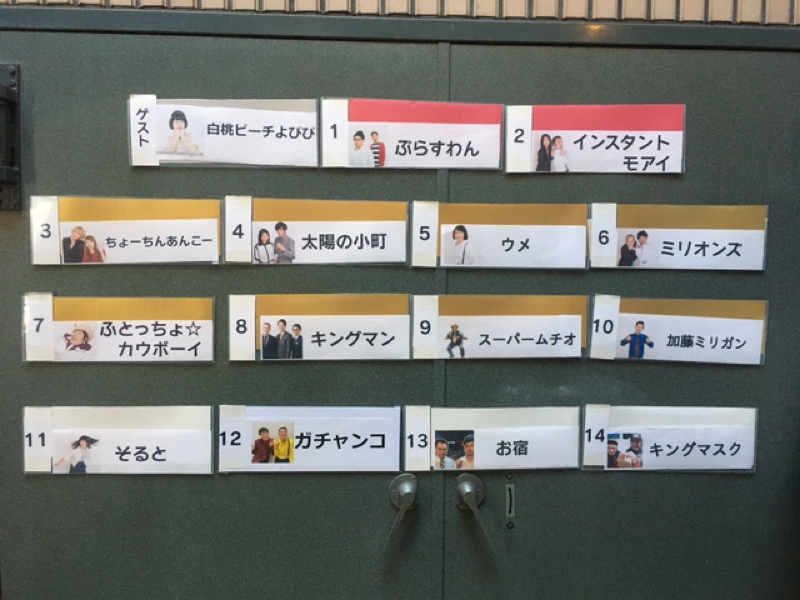 ゲスト 白桃ピーチよぴぴ
1 ぶらすわん
2 インスタント
モアイ
3 ちょーちんあんこー
4 太陽の小町
5 ウメ
6 ミリオンズ
7 ふとっちょ☆
カウボーイ
8 キングマン
9 スーパームチオ
10 加藤ミリガン
11 そると
12 ガチャンコ
13 お宿
14 キングマスク